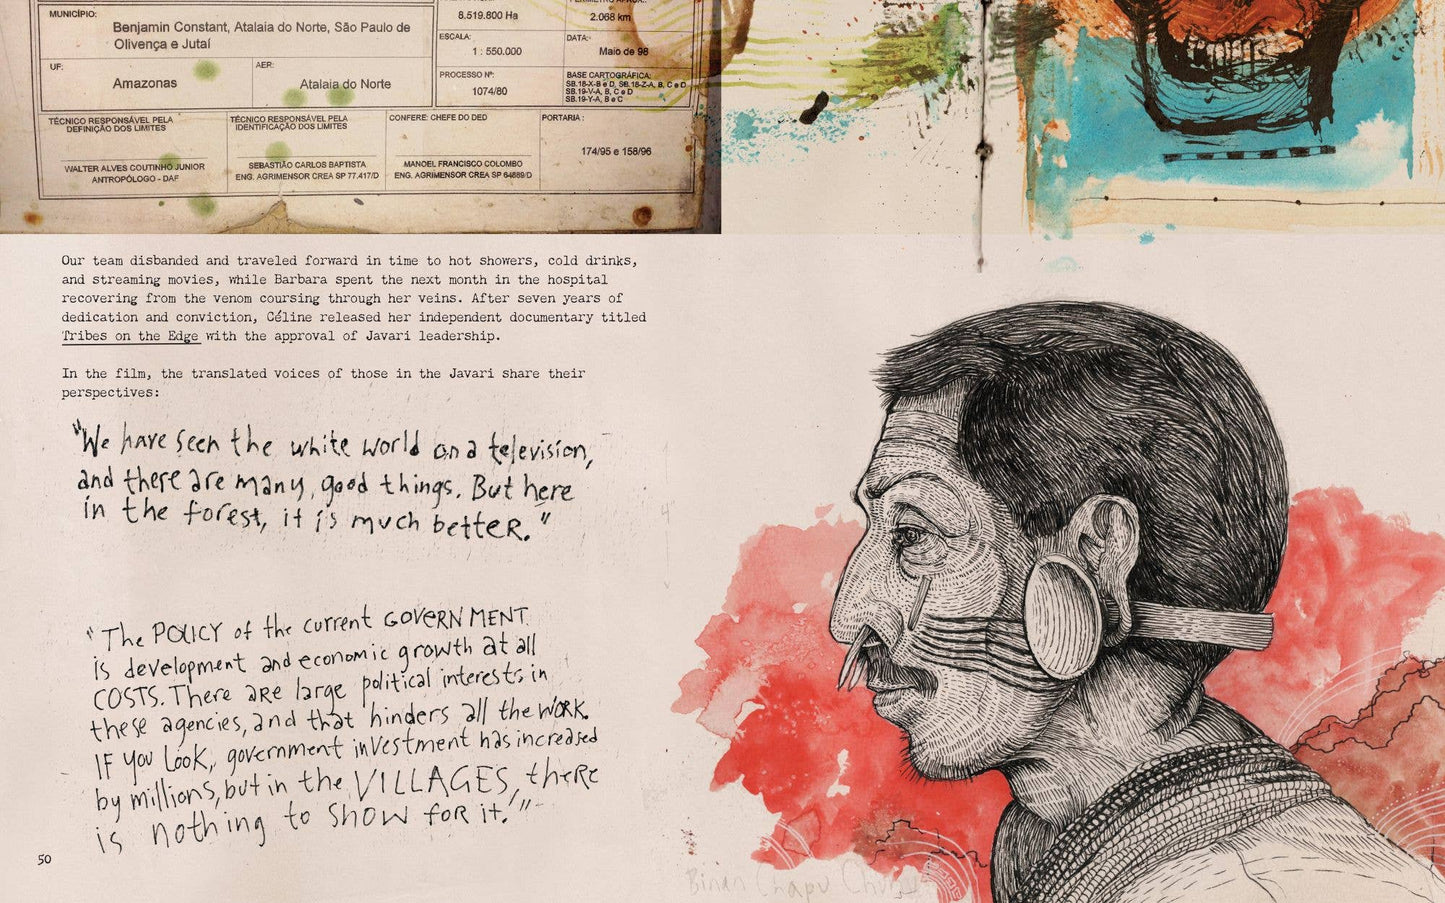 MUNICÍPIO:
Benjamin Constant, Atalaia do Norte, São Paulo de
Olivença e Jutaí
8.519.800 Ha
2.068 km
ESCALA:
1 : 550.000
DATA:
Maio de 98
UF:
Amazonas
AER:
Atalaia do Norte
PROCESSO Nº:
1074/80
BASE CARTOGRÁFICA:
SB.18-X-B e D, SB.18-Z-A, B, C e D
SB.19-V-A, B, C e D
SB.19-Y-A, B e C
TÉCNICO RESPONSÁVEL PELA
DEFINIÇÃO DOS LIMITES
WALTER ALVES COUTINHO JUNIOR
ANTROPÓLOGO - DAF
TÉCNICO RESPONSÁVEL PELA
IDENTIFICAÇÃO DOS LIMITES
SEBASTIÃO CARLOS BAPTISTA
ENG. AGRIMENSOR CREA SP 77.417/D
CONFERE: CHEFE DO DED
MANOEL FRANCISCO COLOMBO
ENG. AGRIMENSOR CREA SP 64889/D
PORTARIA :
174/95 e 158/96
Our team disbanded and traveled forward in time to hot showers, cold drinks,
and streaming movies, while Barbara spent the next month in the hospital
recovering from the venom coursing through her veins. After seven years of
dedication and conviction, Céline released her independent documentary titled
Tribes on the Edge with the approval of Javari leadership.
In the film, the translated voices of those in the Javari share their
perspectives:
"We have seen the white world on a television,
and there are many, good things. But here
in the forest, it is much better."
"The POLICY of the current GOVERNMENT
is development and economic growth at all
COSTS. There are large political interests in
these agencies, and that hinders all the WORK.
IF you look, government investment has increased
by millions, but in the VILLAGES, there
is nothing to show for it."
50